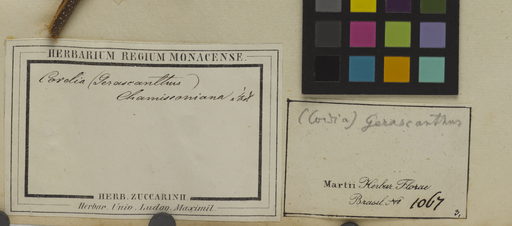 HERBARIUM REGIUM MONACENSE.
Cordia (Gerascanthus)
Chamissoniana
HERB. ZUCCARINII
Herbar. Univ. Ludov. Maximil.
(Cordia) Gerascanthus
Martii Herbar. Florae
Brasil. No 1067